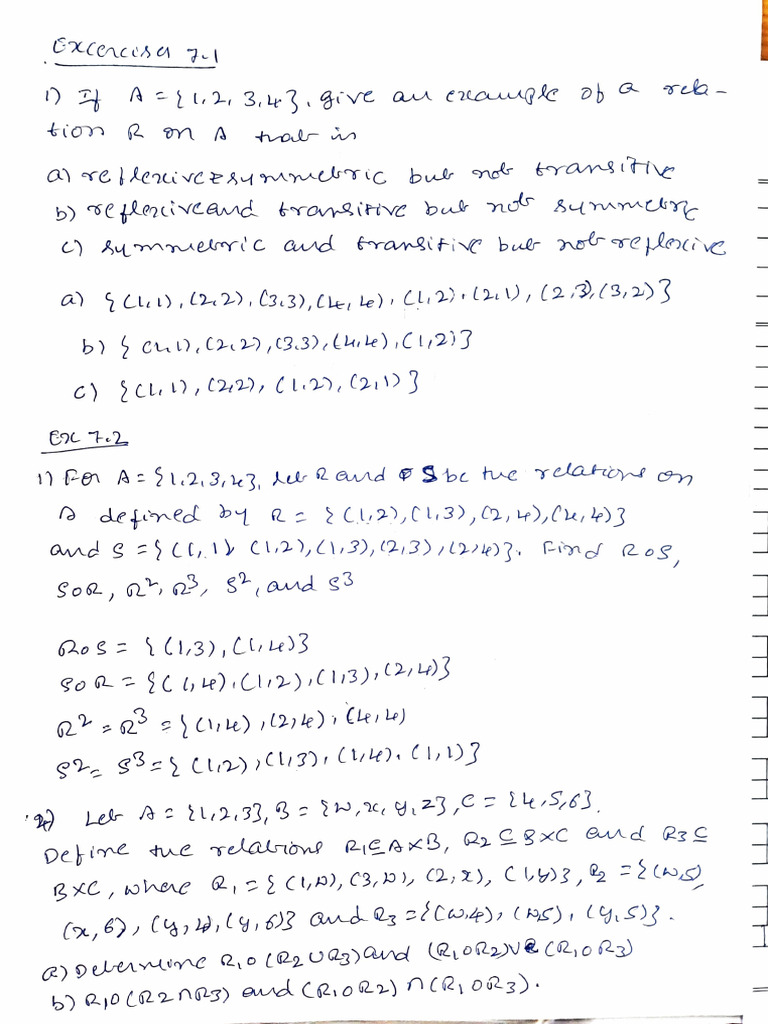 Excercises 7.1
1) If A = {1, 2, 3, 4}, give an example of a rela-
tion R on A that is
a) reflexive & symmetric but not transitive
b) reflexive and transitive but not symmetric
c) symmetric and transitive but not reflexive
a) {(1,1), (2,2), (3,3), (4,4), (1,2), (2,1), (2,3), (3,2)}
b) {(1,1), (2,2), (3,3), (4,4), (1,2)}
c) {(1,1), (2,2), (1,2), (2,1)}
Ex 7.2
1) For A = {1,2,3,4}, let R and S be the relations on
A defined by R = {(1,2), (1,3), (2,4), (4,4)}
and S = {(1,1), (1,2), (1,3), (2,3), (2,4)}. Find ROS,
SOR, R², R³, S², and S³
ROS = {(1,3), (1,4)}
SOR = {(1,4), (1,2), (1,3), (2,4)}
R² = R³ = {(1,4), (2,4), (4,4)
S² = S³ = {(1,2), (1,3), (1,4), (1,1)}
2) Let A = {1,2,3}, B = {w, x, y, z}, C = {4,5,6}.
Define the relations R1⊆A×B, R2⊆B×C and R3⊆
B×C, where R1 = {(1,w), (3,w), (2,x), (1,y)}, R2 = {(w,5),
(x,6), (y,4), (y,6)} and R3 = {(w,4), (w5), (y,5)}.
a) Determine R1O(R2∪R3) and (R1OR2)∪(R1OR3)
b) R1O(R2∩R3) and (R1OR2)∩(R1OR3).